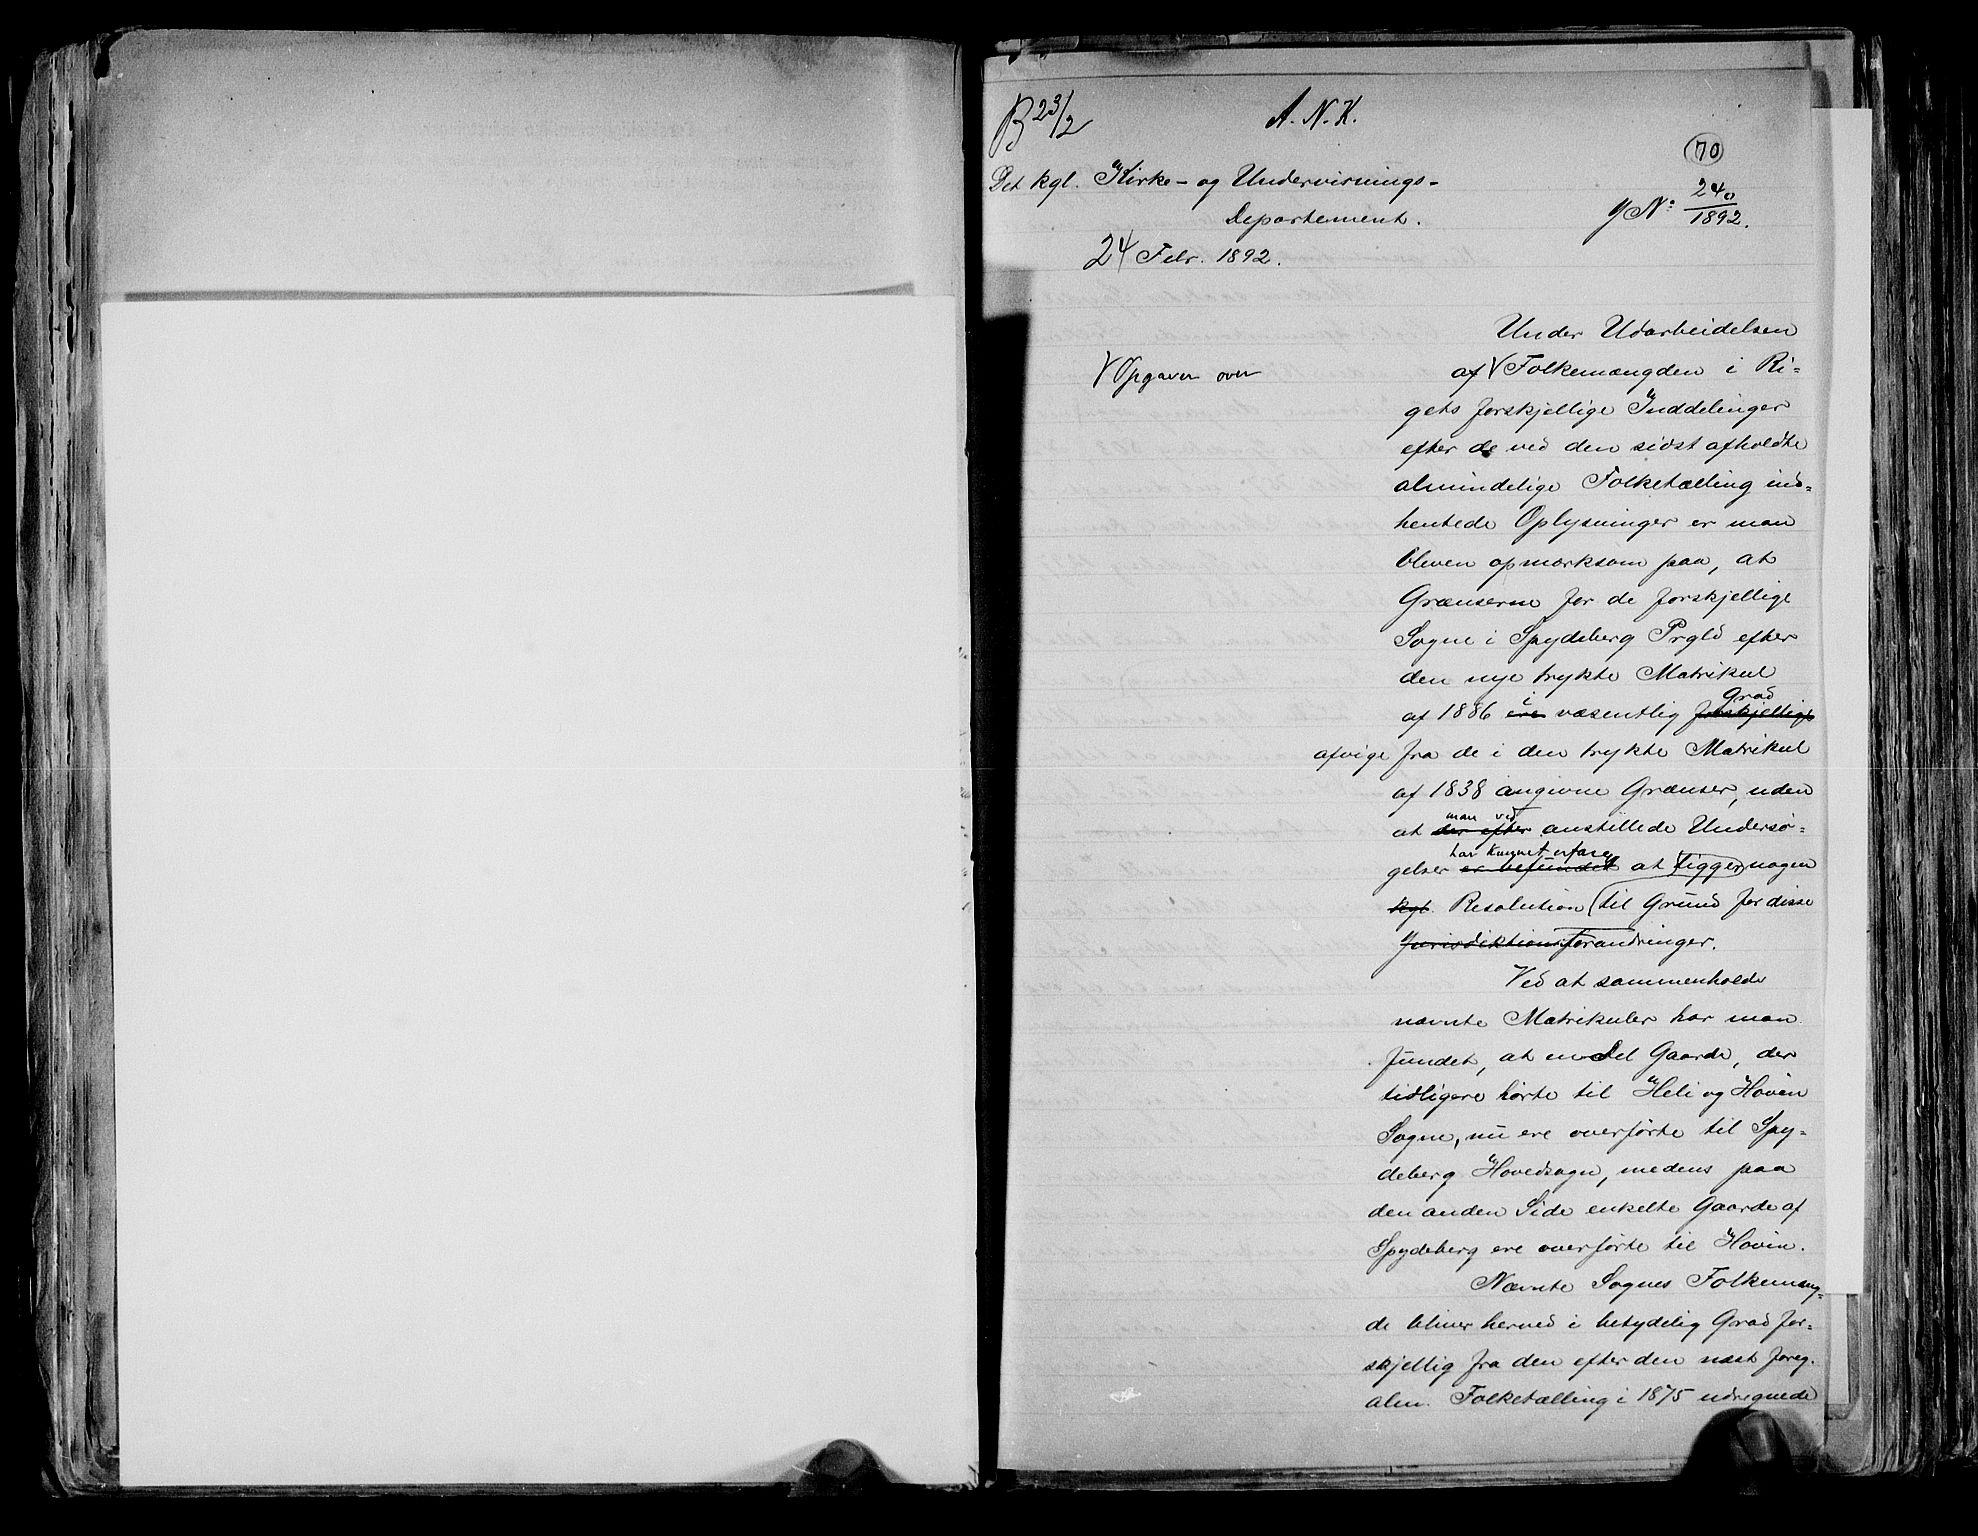 B 23/2
A. N. K.
70
Det kgl. Kirke- og Undervisnings-
Departement.
J N: 240/1892.
24 Febr. 1892.
Under Udarbeidelsen
√ Opgaver over
af √ Folkemængden i Ri-
gets forskjellige Inddelinger
efter de ved den sidst afholdte
almindelige Folketælling ind-
hentede Oplysninger er man
bleven opmærksom paa, at
Grænserne for de forskjellige
Sogne i Spydeberg Prgld efter
den nye trykte Matrikul
af 1886 ere i væsentlig forskjellige Grad
afvige fra de i den trykte Matrikul
af 1838 angivne Grænser, uden
at der efter man ved anstillede Undersø-
gelser er befundet har kunnet erfare at ligger nogen
kgl. Resolution til Grund for disse
Jurisdiktionsforandringer.
Ved at sammenholde
nævnte Matrikuler har man
fundet, at en Del Gaarde, der
tidligere hørte til Heli og Hovin
Sogne, nu ere overførte til Spy-
deberg Hovedsogn, medens paa
den anden Side enkelte Gaarde af
Spydeberg ere overførte til Hovin.
Nævnte Sognes Folkemæng-
de bliver herved i betydelig Grad for-
skjellig fra den efter den næst foreg.
alm. Folketælling i 1875 udregnede